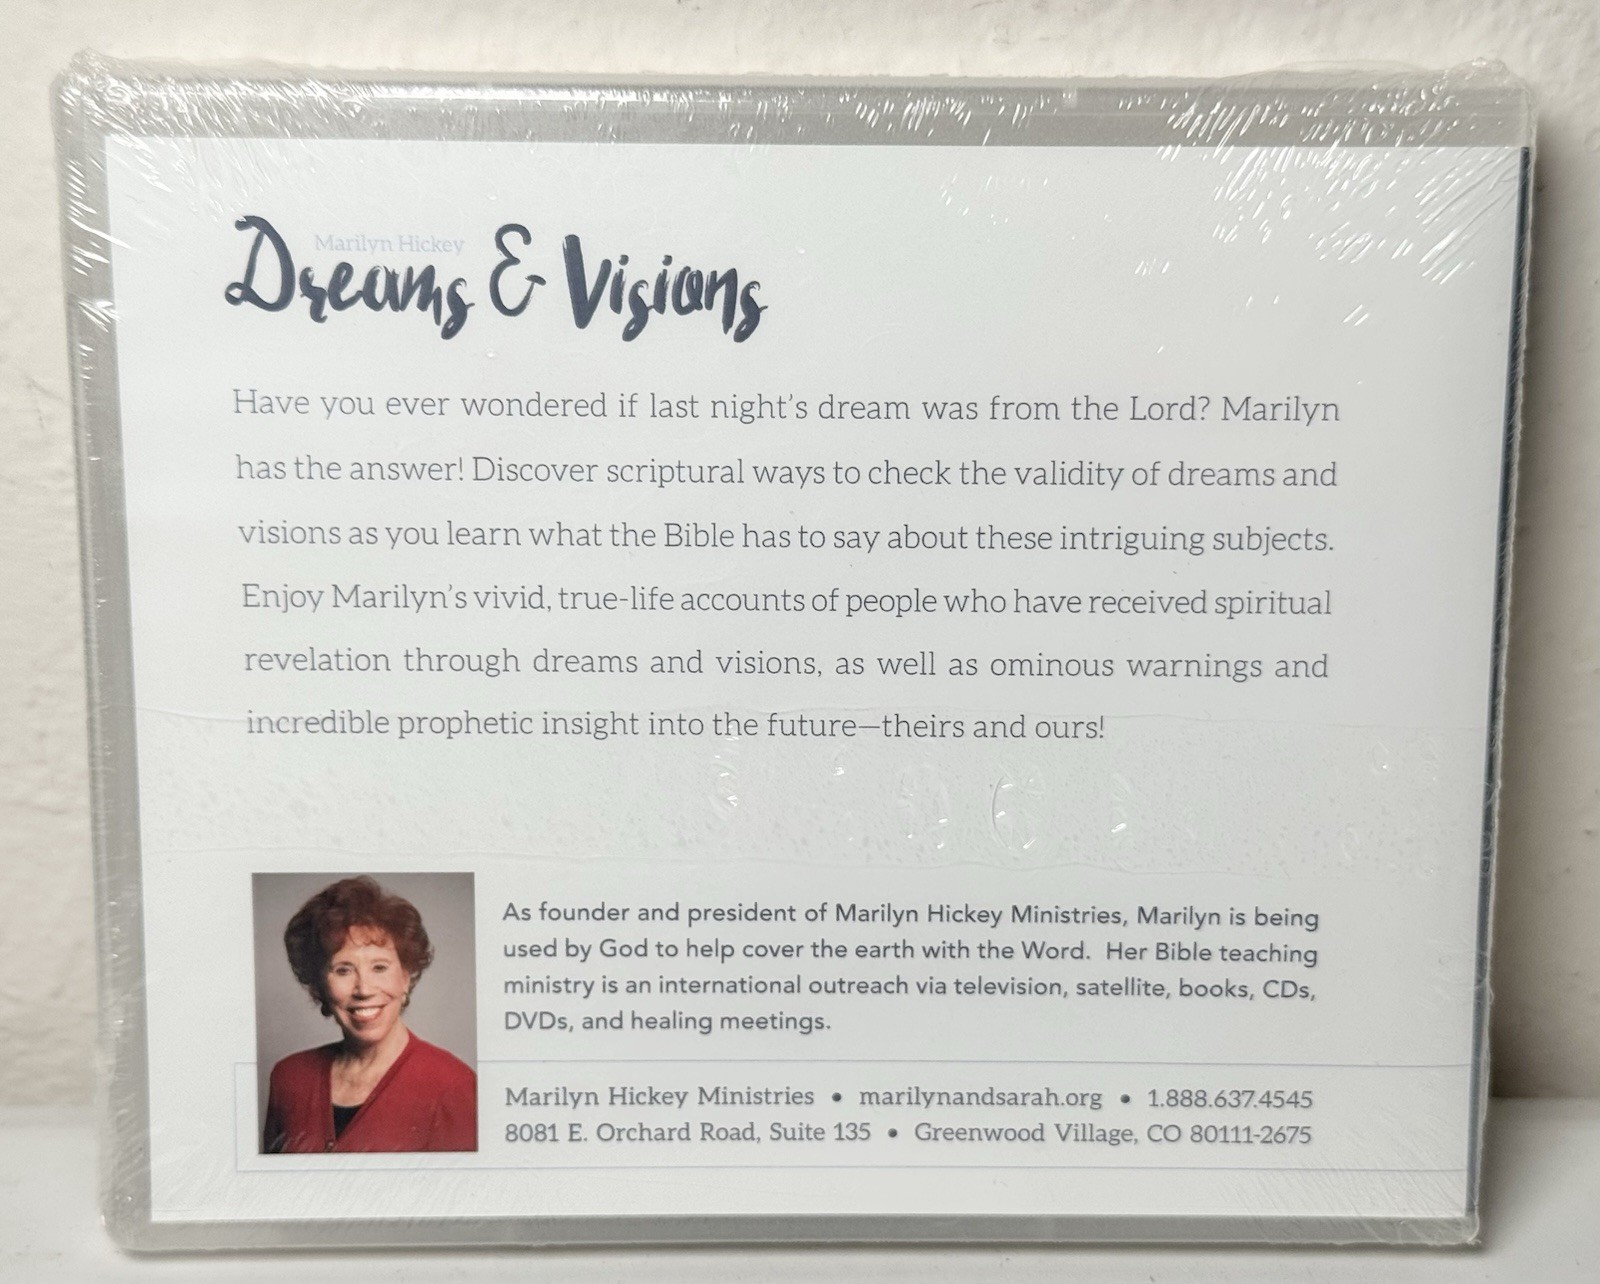 Marilyn Hickey
Dreams & Visions
Have you ever wondered if last night’s dream was from the Lord? Marilyn
has the answer! Discover scriptural ways to check the validity of dreams and
visions as you learn what the Bible has to say about these intriguing subjects.
Enjoy Marilyn’s vivid, true-life accounts of people who have received spiritual
revelation through dreams and visions, as well as ominous warnings and
incredible prophetic insight into the future—theirs and ours!
As founder and president of Marilyn Hickey Ministries, Marilyn is being
used by God to help cover the earth with the Word. Her Bible teaching
ministry is an international outreach via television, satellite, books, CDs,
DVDs, and healing meetings.
Marilyn Hickey Ministries • marilynandsarah.org • 1.888.637.4545
8081 E. Orchard Road, Suite 135 • Greenwood Village, CO 80111-2675